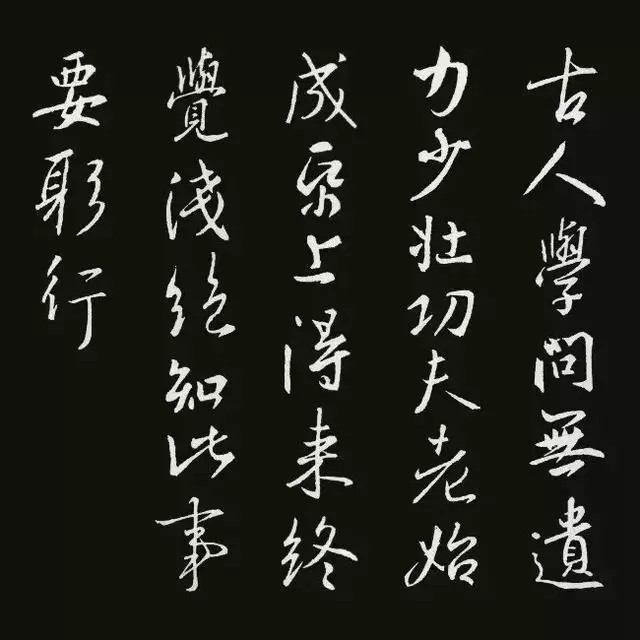 古人學問無遺
力少壯功夫老始
成帋上得來終
覺淺絕知此事
要躬行